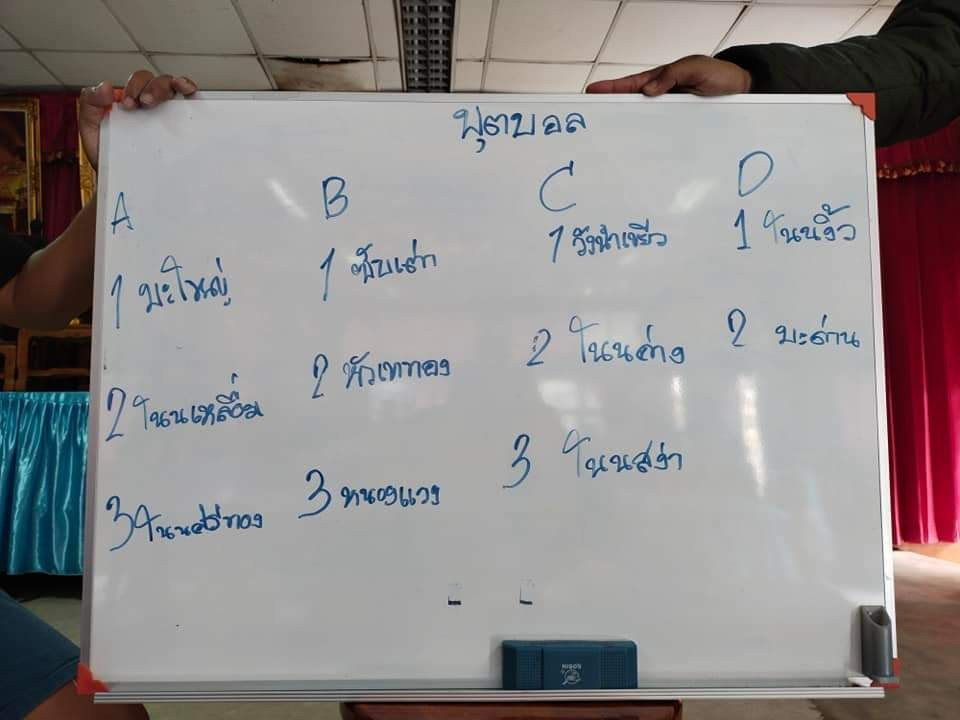 ฟุตบอล
A B C D
1 มะใหญ่ 1 ซับเต่า 1 วังน้ำเขียว 1 โนนงิ้ว
2 โนนเหลื่อม 2 หัวเททอง 2 โนนค่าง 2 มะค่าน
3 โนนศรีทอง 3 หนองแวง 3 โนนสง่า